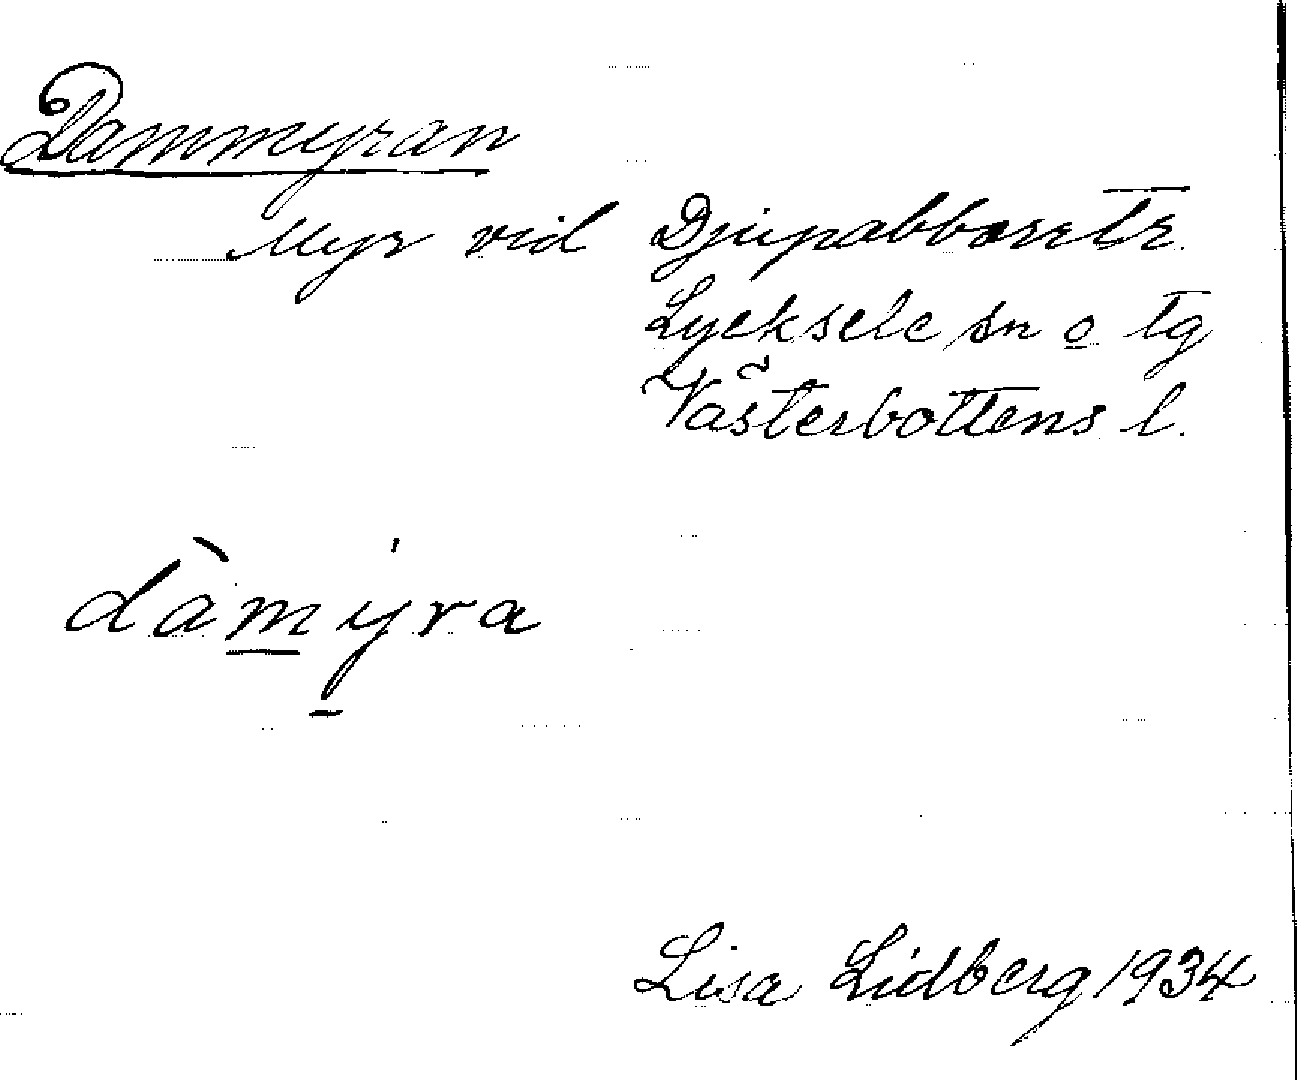 Dammyran
Myr vid Djupabborrtr.
Lycksele sn o tg
Västerbottens l.
dàmy̍ra
Lisa Lidberg 1934